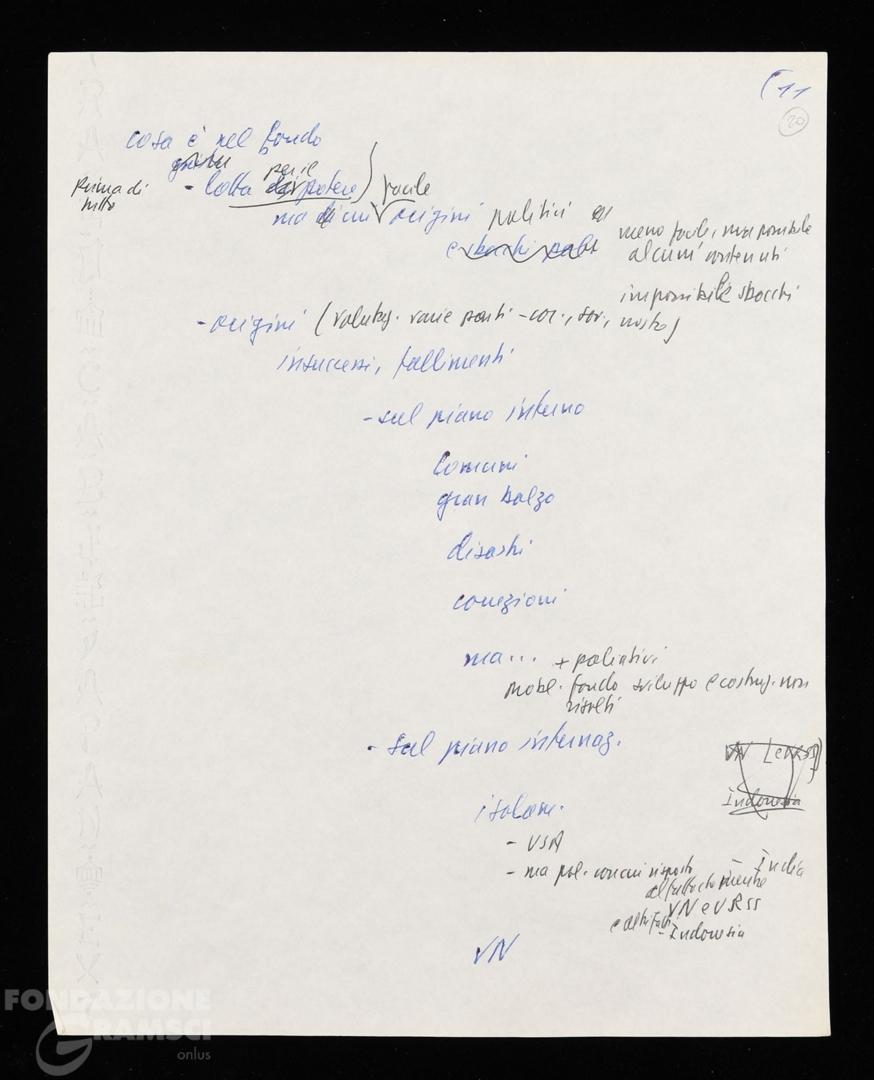 11
20
cosa è nel fondo
Prima di
tutto
- lotta per il potere) facile
ma di cui origini politici
meno facile, ma possibile
alcuni contenuti
impossibile sbocchi
- origini (valutaz. varie parti - occ., sov., nostra)
insuccessi, fallimenti
- sul piano interno
Comuni
gran balzo
disastri
correzioni
ma... + palliativi
probl. fondo sviluppo e costruz. non
risolti
- sul piano internaz.
VN [e URSS]
Indonesia
isolam.
- USA
- ma pol. con cui risposto
- India
VN e URSS
e altri fatti
- Indonesia
VN
FONDAZIONE
GRAMSCI
onlus